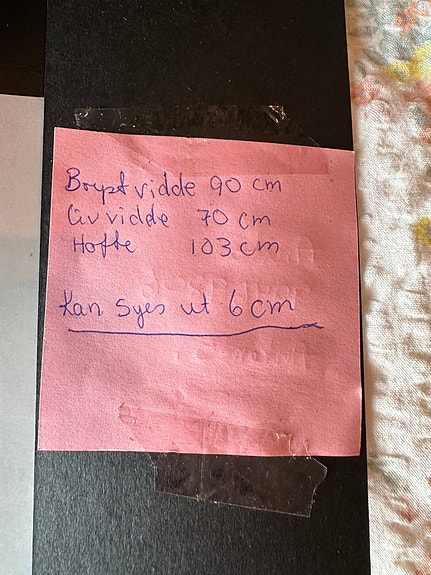 Brystvidde 90 cm
Livvidde 70 cm
Hofte 103 cm
Kan syes ut 6 cm